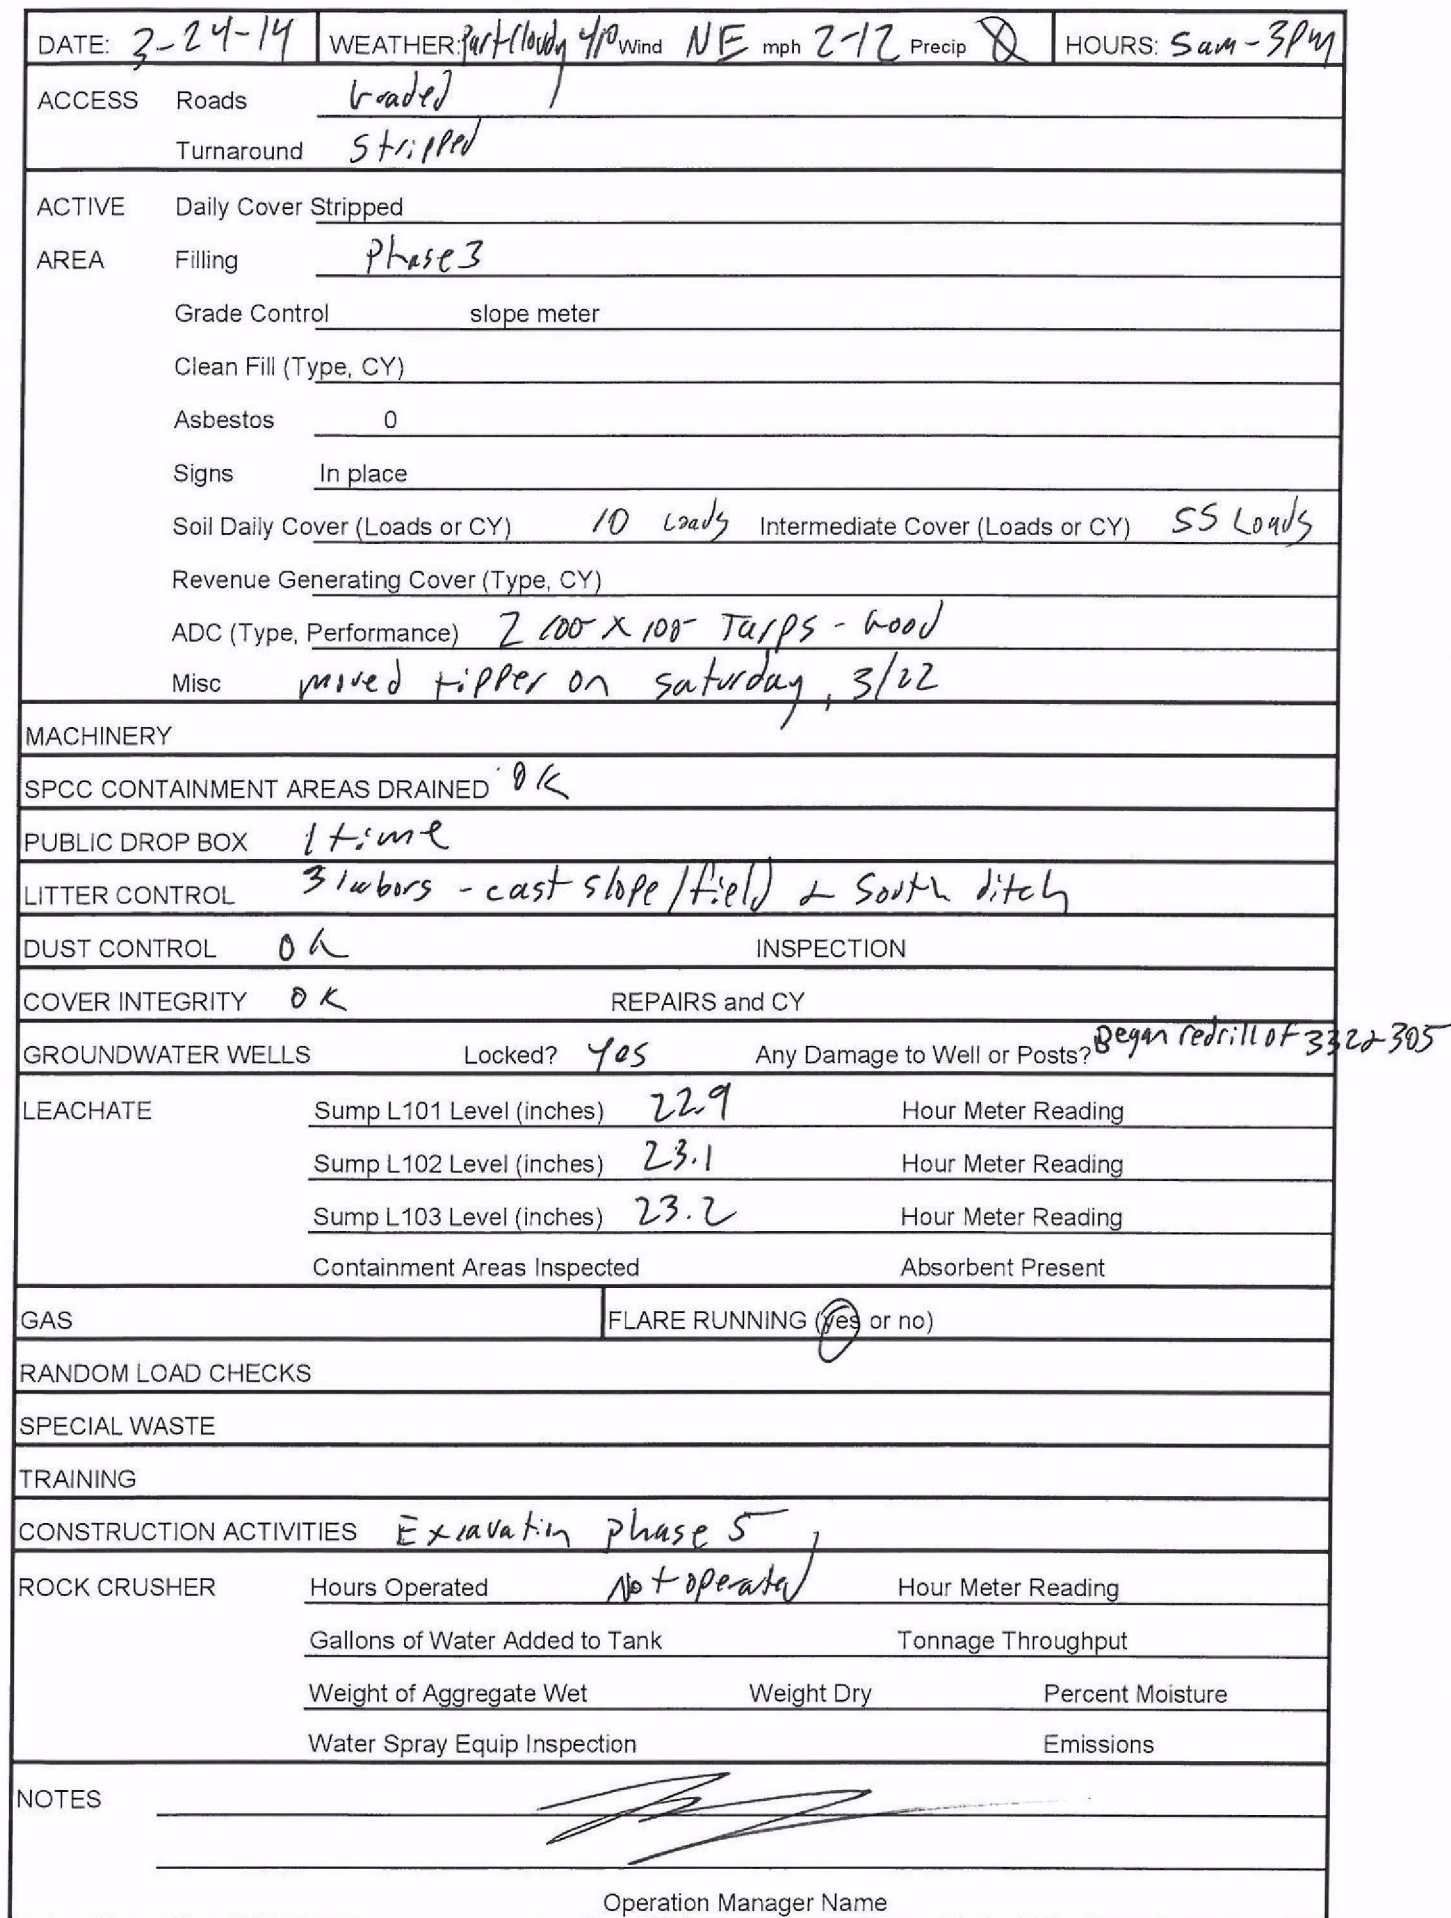 DATE: 3-24-14 WEATHER: Part Cloudy 40 Wind NE mph 2-12 Precip 0 HOURS: 5am-3PM
ACCESS Roads Graded
Turnaround Stripped
ACTIVE Daily Cover Stripped
AREA Filling Phase 3
Grade Control slope meter
Clean Fill (Type, CY)
Asbestos 0
Signs In place
Soil Daily Cover (Loads or CY) 10 Loads Intermediate Cover (Loads or CY) 55 Loads
Revenue Generating Cover (Type, CY)
ADC (Type, Performance) 2 100 x 100 Tarps - Good
Misc moved tipper on saturday, 3/22
MACHINERY
SPCC CONTAINMENT AREAS DRAINED OK
PUBLIC DROP BOX 1 time
LITTER CONTROL 3 labors - east slope/field & South ditch
DUST CONTROL OK INSPECTION
COVER INTEGRITY OK REPAIRS and CY
GROUNDWATER WELLS Locked? Yes Any Damage to Well or Posts? Began redrill of 332 & 305
LEACHATE Sump L101 Level (inches) 22.9 Hour Meter Reading
Sump L102 Level (inches) 23.1 Hour Meter Reading
Sump L103 Level (inches) 23.2 Hour Meter Reading
Containment Areas Inspected Absorbent Present
GAS FLARE RUNNING (yes or no)
RANDOM LOAD CHECKS
SPECIAL WASTE
TRAINING
CONSTRUCTION ACTIVITIES Excavatin phase 5
ROCK CRUSHER Hours Operated Not operated Hour Meter Reading
Gallons of Water Added to Tank Tonnage Throughput
Weight of Aggregate Wet Weight Dry Percent Moisture
Water Spray Equip Inspection Emissions
NOTES
Operation Manager Name